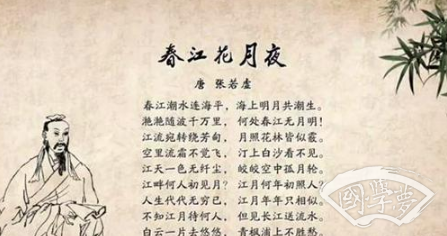 春江花月夜
唐 张若虚
春江潮水连海平，海上明月共潮生。
滟滟随波千万里，何处春江无月明！
江流宛转绕芳甸，月照花林皆似霰。
空里流霜不觉飞，汀上白沙看不见。
江天一色无纤尘，皎皎空中孤月轮。
江畔何人初见月？江月何年初照人？
人生代代无穷已，江月年年只相似。
不知江月待何人，但见长江送流水。
白云一片去悠悠，青枫浦上不胜愁。
國學夢